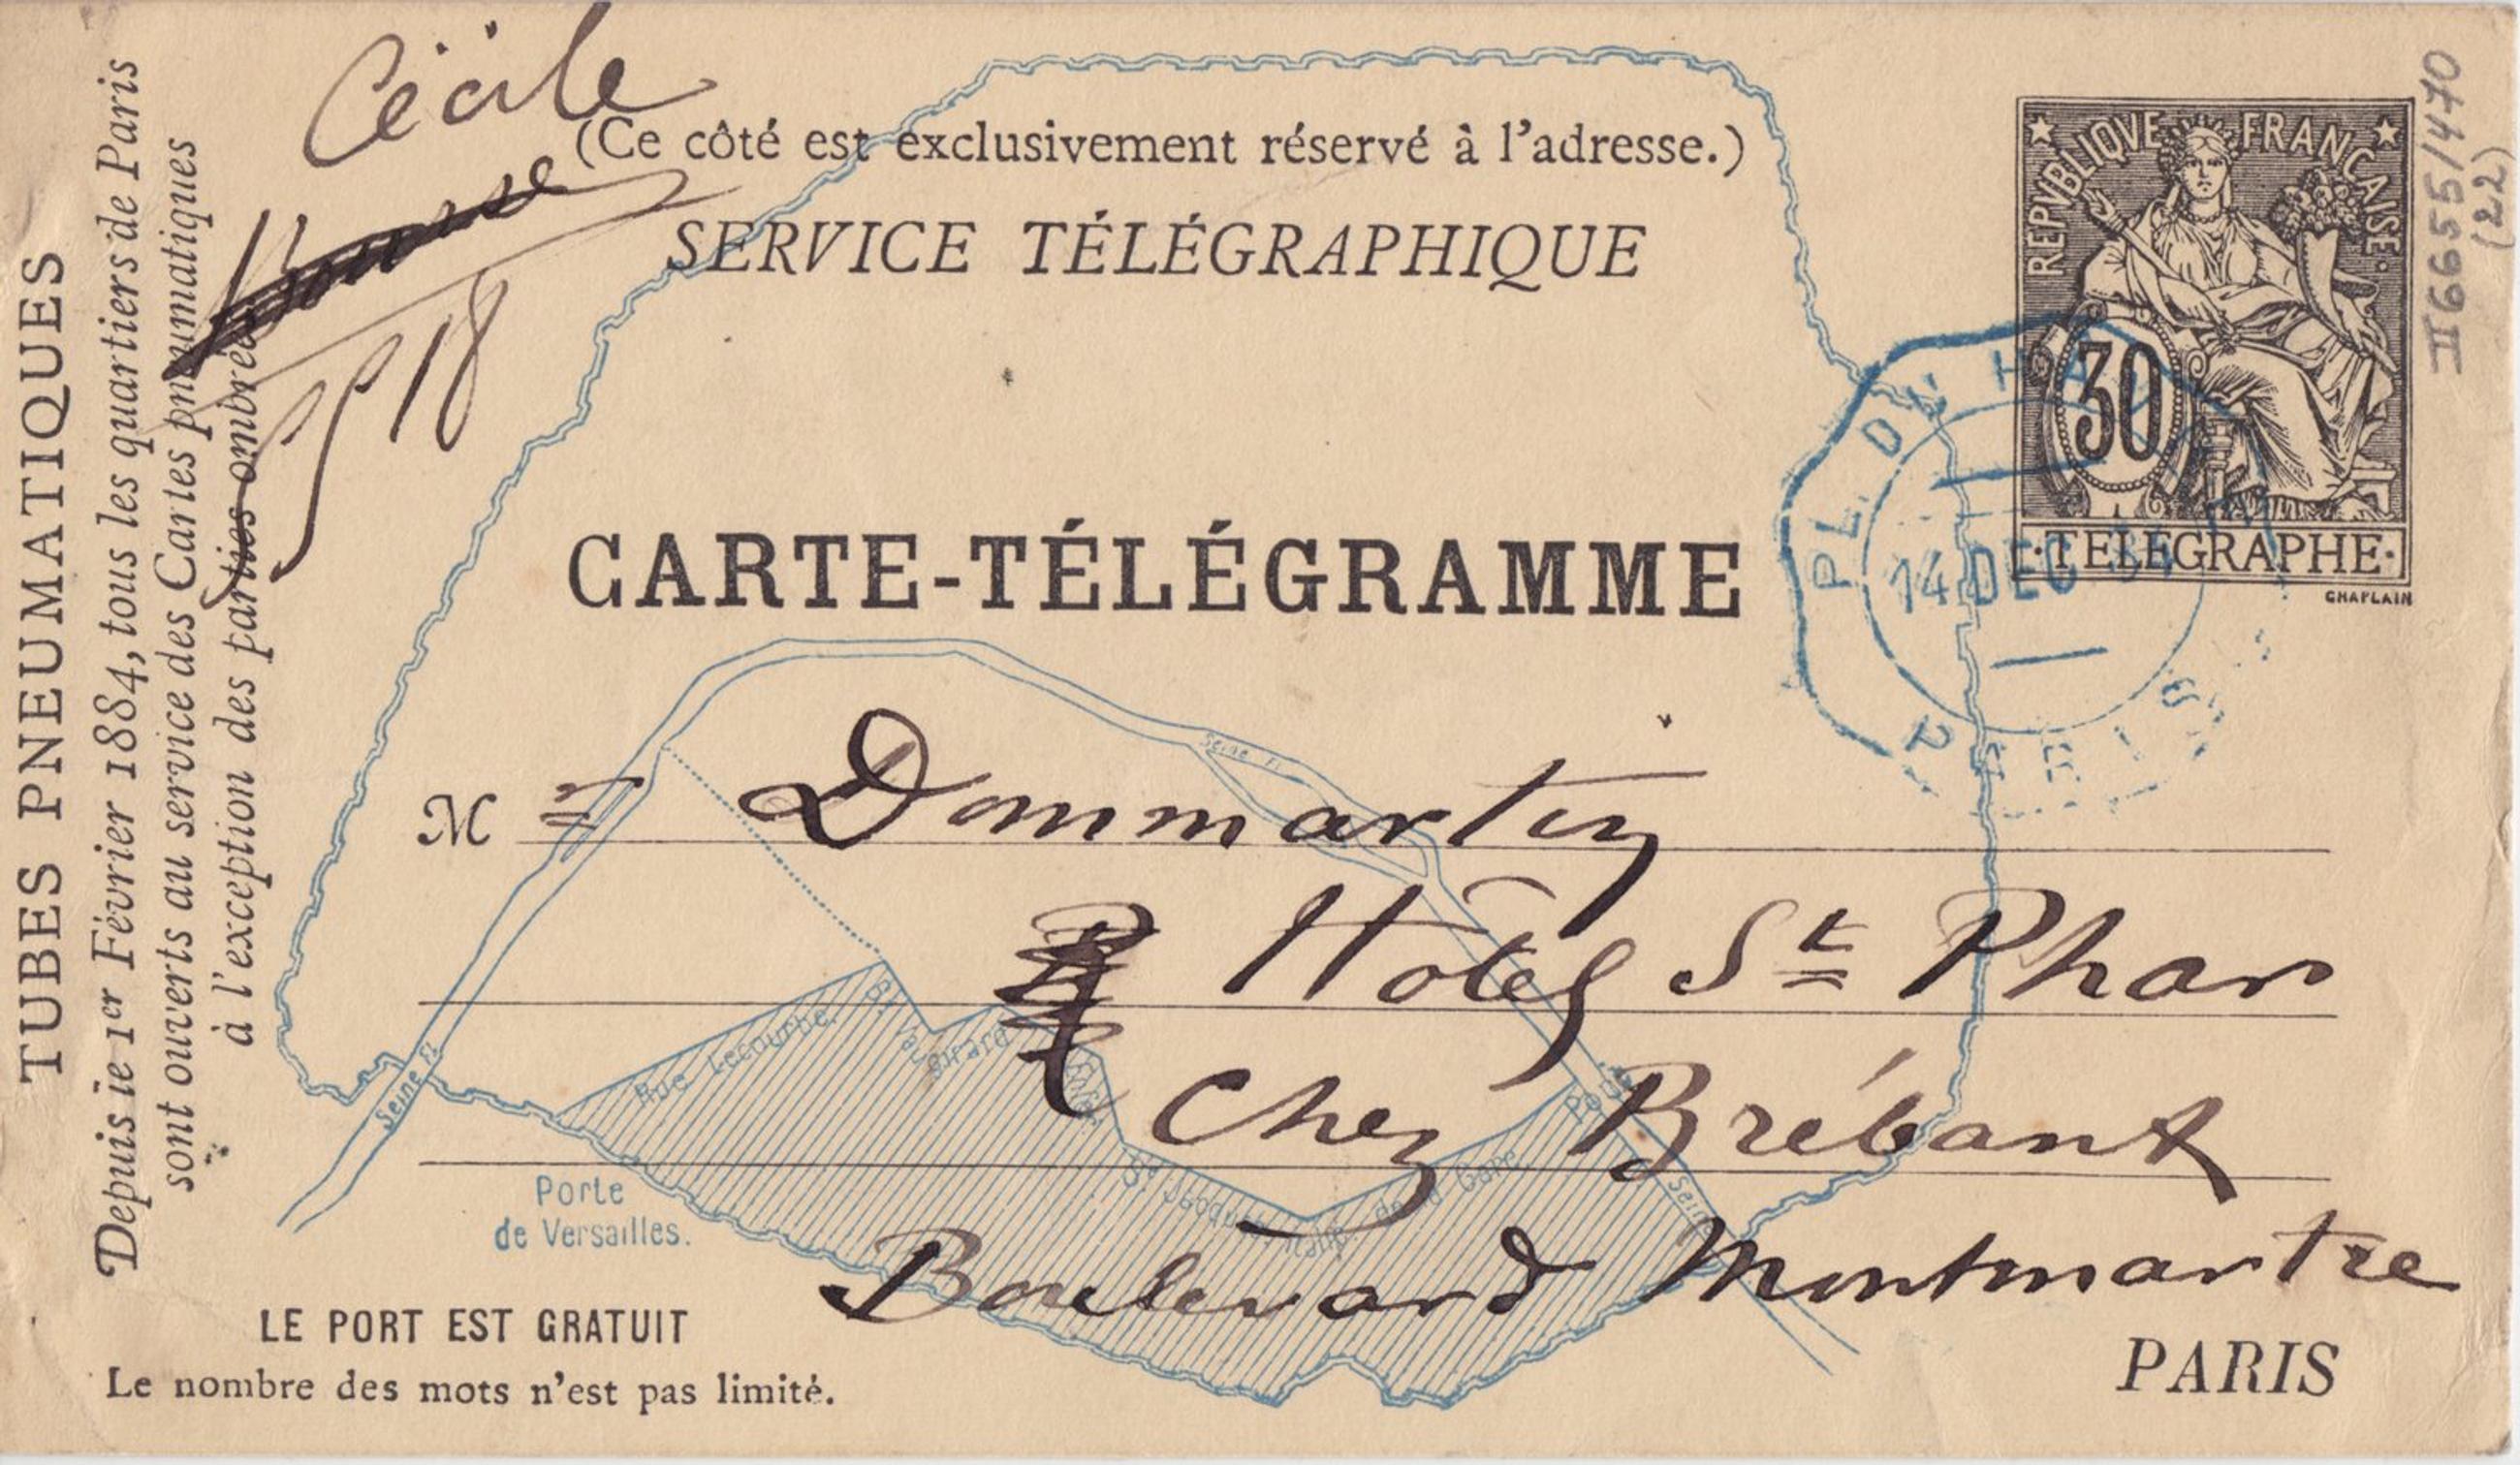 TUBES PNEUMATIQUES
Depuis le 1er Février 1884, tous les quartiers de Paris
sont ouverts au service des Cartes pneumatiques
à l'exception des parties ombrées
Cécile
(Ce côté est exclusivement réservé à l'adresse.)
SERVICE TÉLÉGRAPHIQUE
18
CARTE-TÉLÉGRAMME
REPVBLIQVE FRANÇAISE
30
TELEGRAPHE
CHAPLAIN
II6655/1470
(22)
PL. DU
14 DEC 84
M Dommartin
Hotel St Phar
Chez Brébant
Boulevard Montmartre
PARIS
Seine Fl.
Seine Fl.
Rue Lecourbe.
Bd Vaugirard
St Jacques Italie de la Gare
Seine
Porte
de Versailles.
LE PORT EST GRATUIT
Le nombre des mots n'est pas limité.